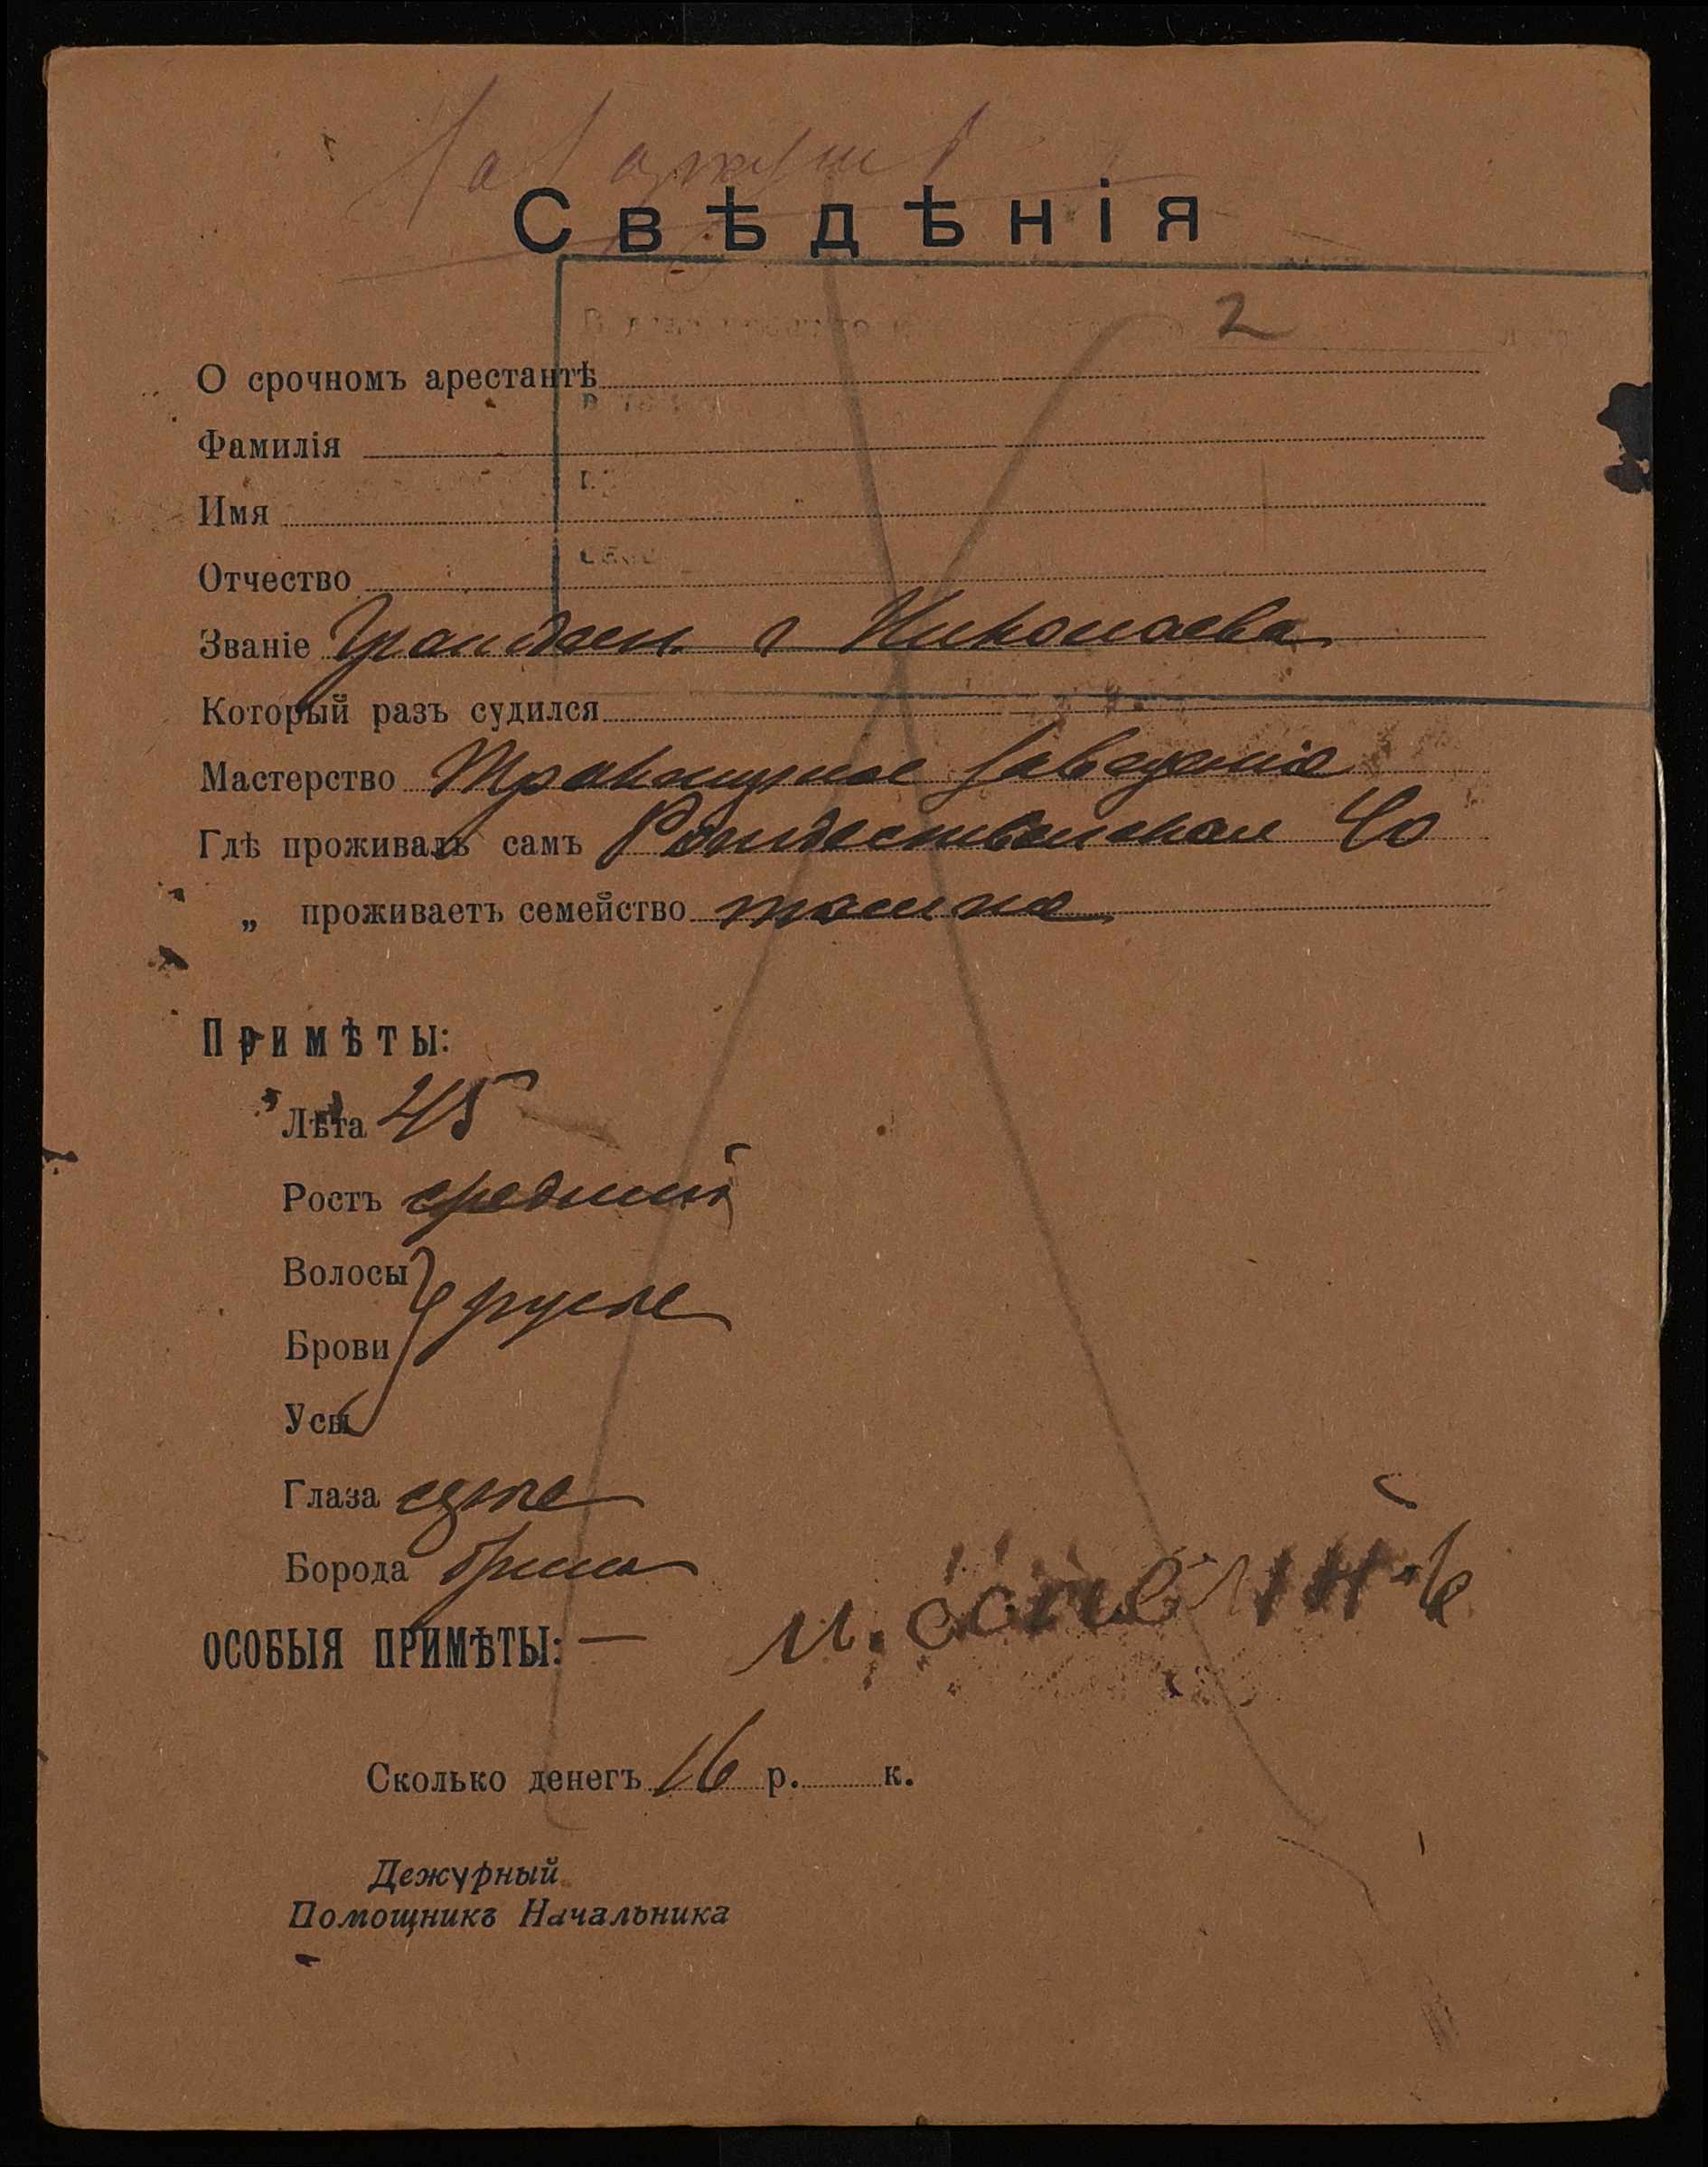 Свѣдѣнія
2
О срочномъ арестантѣ
Фамилія
Имя
Отчество
Званіе Граждан. г Николаева
Который разъ судился
Мастерство Трактирное заведеніе
Гдѣ проживалъ самъ Рождественская 40
„ проживаетъ семейство
Примѣты:
Лѣта 45
Ростъ средній
Волосы
русые
Брови
Усы
Глаза
Борода
ОСОБЫЯ ПРИМѢТЫ: —
Сколько денегъ 16 р. к.
Дежурный
Помощникъ Начальника